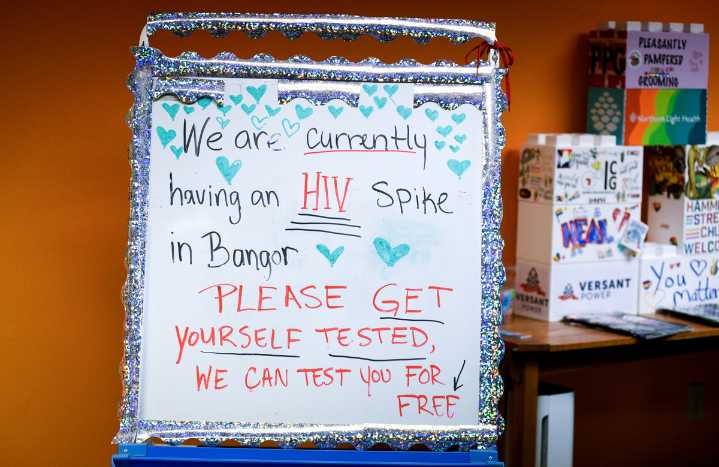 We are currently
having an HIV Spike
in Bangor
PLEASE GET
YOURSELF TESTED,
WE CAN TEST YOU FOR
FREE
PLEASANTLY
PAMPERED
GROOMING
Northern Light Health
HEAL
VERSANT
POWER
VERSANT
POWER
HAMM
STRE
CHU
WELCO
You
Matter